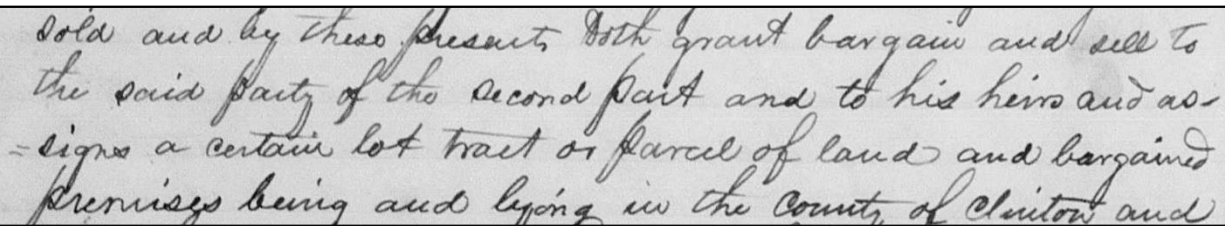 sold and by these presents doth grant bargain and sell to
the said party of the second part and to his heirs and as-
=signs a certain lot tract or parcel of land and bargained
premises being and lying in the County of Clinton and